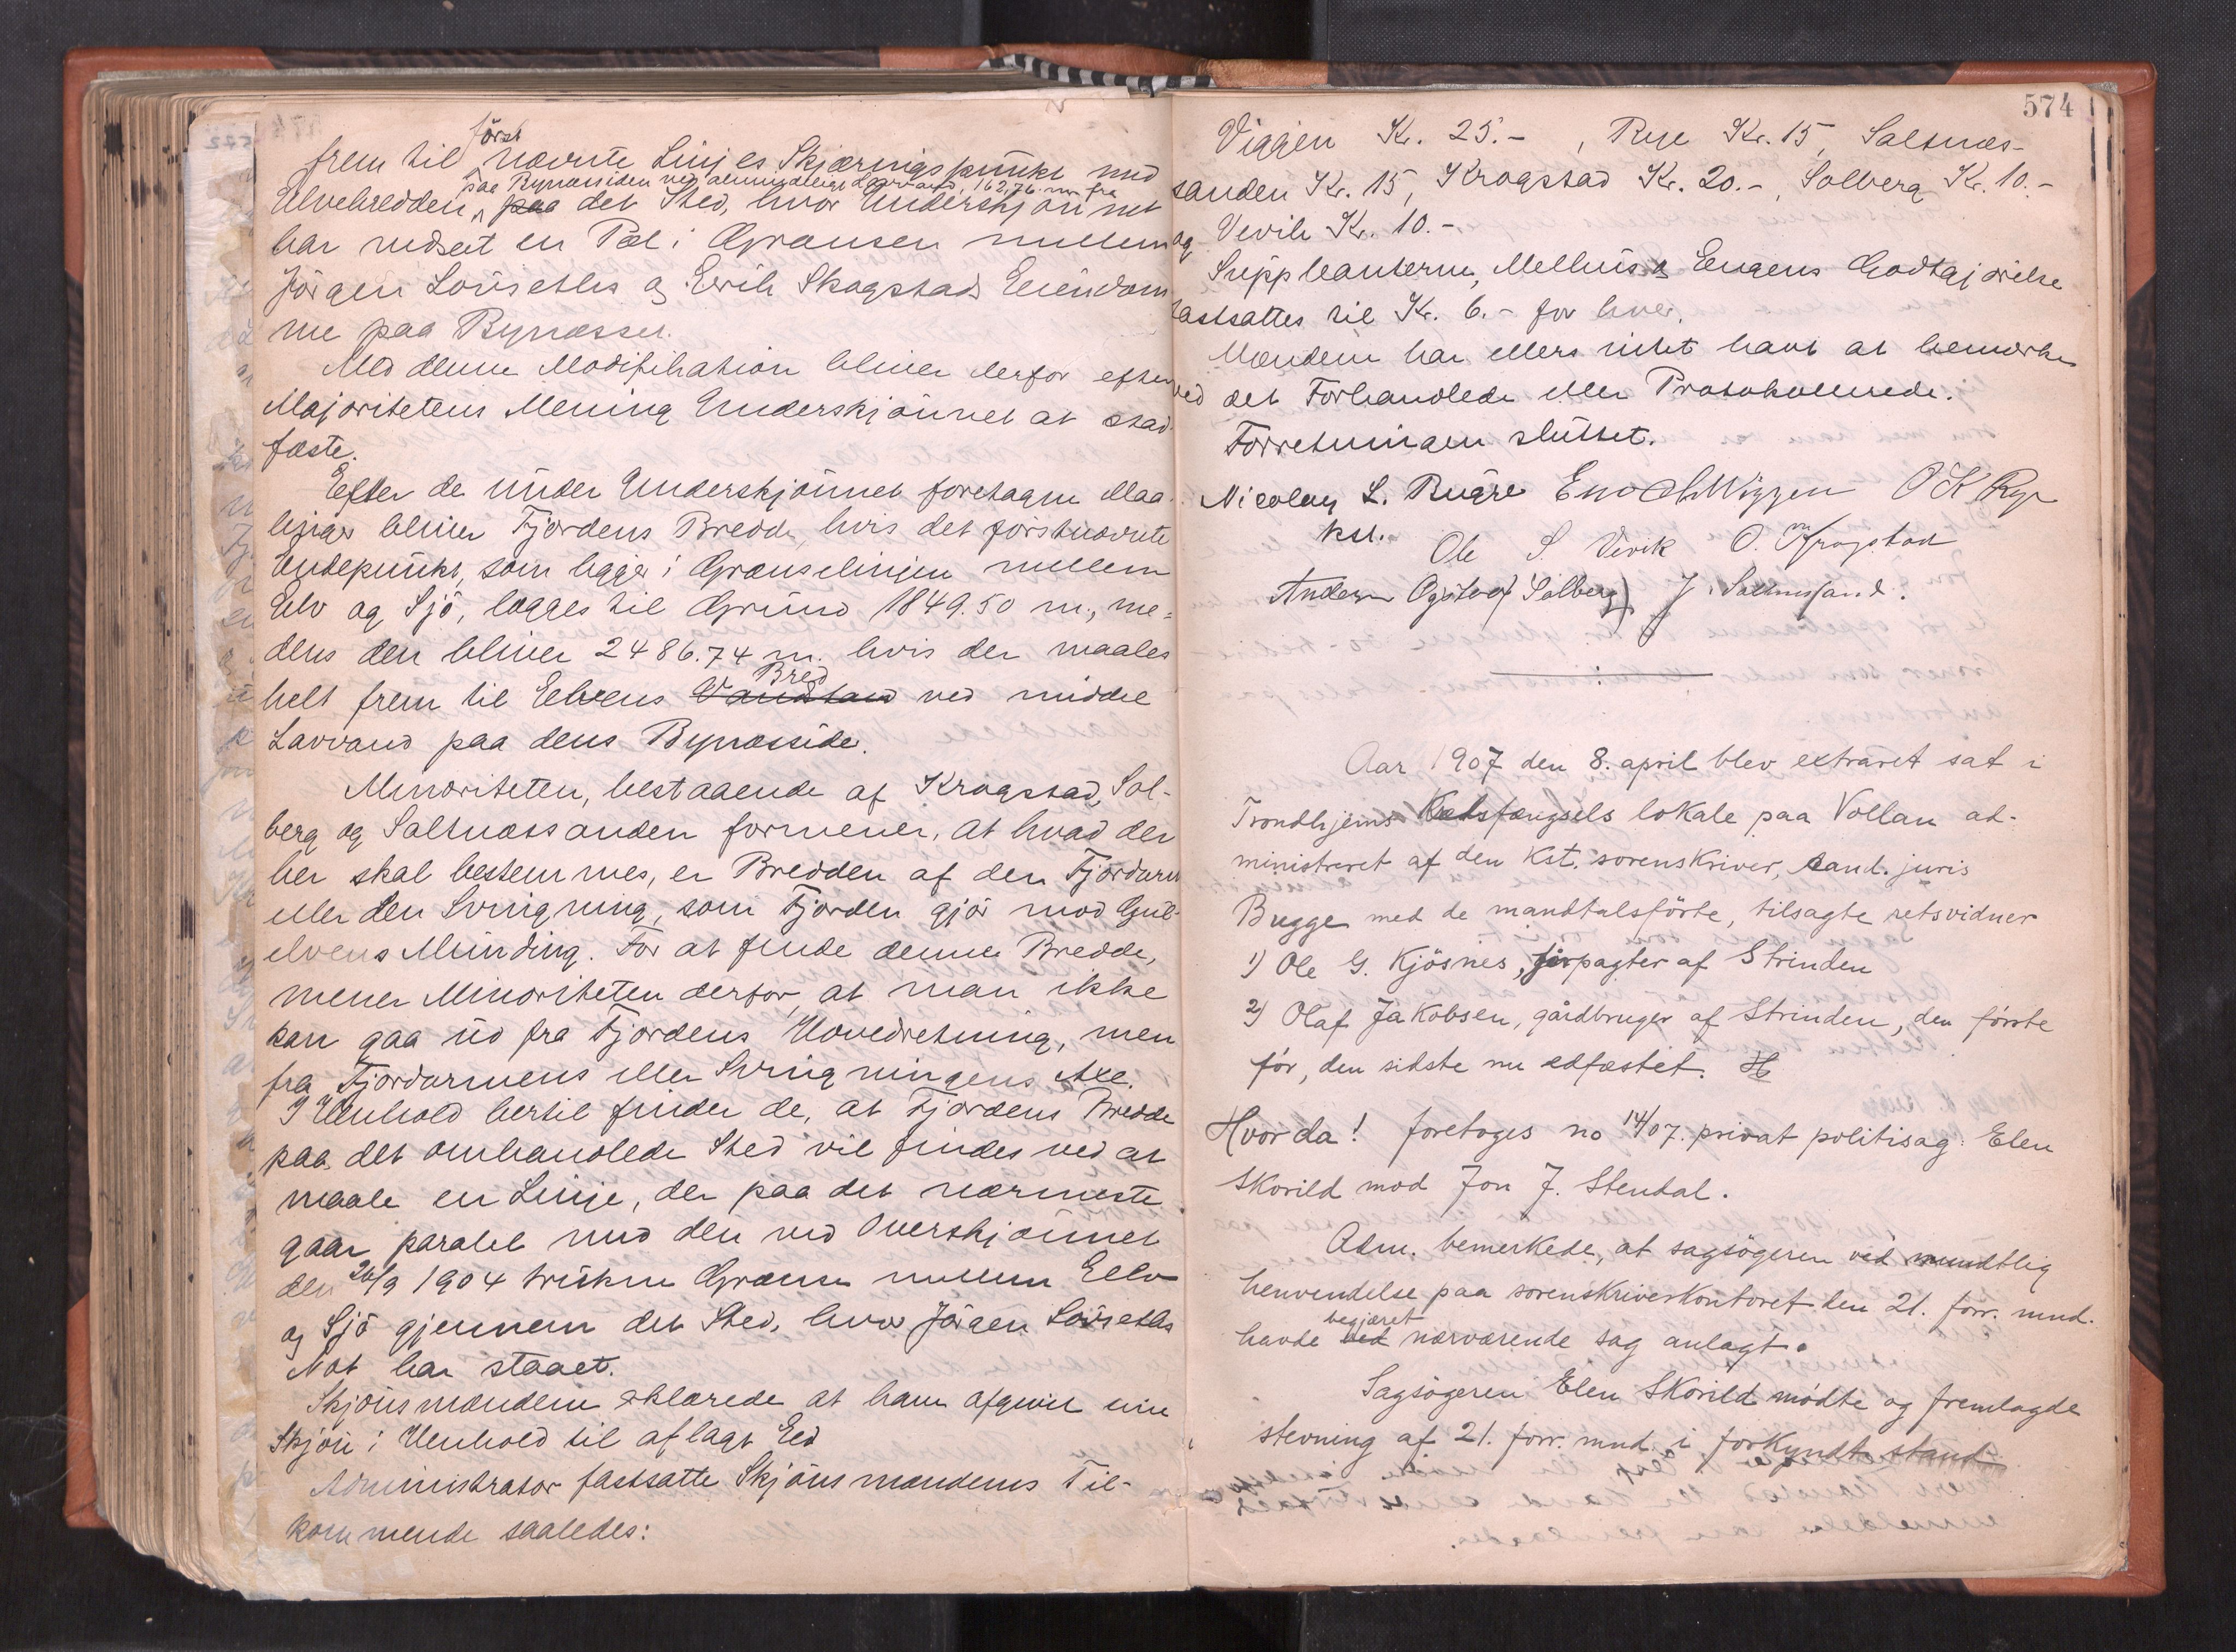 frem til först nævnte Linjes Skjæringspunkt med
Elvebredden paa Bynæssiden ved almindeligt Lavvand, 162,76 m fra
paa det Sted, hvor Underskjönnet
har nedsat en Pæl i Grænsen mellem
Jörgen Louseths og Eerik Skogstads Eiendom
me paa Bynæsset.
Med denne Modifikation bliver derfor efter
Majoritetens Mening Underskjönnet at stad-
fæste.
Efter de under Underskjönnet foretagne Maa-
linger bliver Fjordens Bredde, hvis det förstnævnte
Endepunkt, som ligger i Grænselinjen mellem
Elv og Sjö, lægges til Grund 1849.50 m., me=
dens den bliver 2486.74 m. hvis der maales
helt frem til Eelvens Vandstand Bred ved middel
Lavvand paa dens Bynæsside.
Minoriteten, bestaaende af Krogstad, Sol-
berg og Saltnæssanden formener, at hvad der
her skal bestemmes, er Bredden af den Fjordarm
eller den Svingning, som Fjorden gjör mod Gul-
elvens Munding. For at finde denne Bredde,
mener Minoriteten derfor, at man ikke
kan gaa ud fra Fjordens Hovedretning, men
fra Fjordarmens eller Svingningens Axe.
I Henhold hertil finder de, at Fjordens Bredde
paa det omhandlede Sted vil findes ved at
maale en Linje, der paa det nærmeste
gaar paralel med den ved Overskjönnet
den 26/9 1904 trukne Grænse mellem Eelv
og Sjö gjennem det Sted, hvor Jörgen Louseths
Not har staaet.
Skjönsmændene erklærede at have afgivet sine
Skjön i Henhold til aflagt Eed
Administrator fastsatte Skjönsmændenes Til-
kommende saaledes:
574
Viggen Kr. 25.- , Rye Kr. 15, Saltnæs-
sanden Kr. 15, Krogstad Kr. 20.-, Solberg Kr. 10.-
og Vevik Kr. 10.-
Suppleanterne, Melhus og Eugens Godtgjörelse
fastsattes til Kr. 6.- for hver.
Mændene har ellers intet havt at bemærke
ved det Forhandlede eller Protokollerede.
Forretningen sluttet.
Nicolay L. Bugge Enoch Wiggen O K Rye
kst. Ole S. Vevik O. M Krogstad
Anders Solberg J. Saltnessand.
Aar 1907 den 8. april blev extraret sat i
Trondhjems Kredsfængsels lokale paa Vollan ad-
ministreret af den kst. sorenskriver, cand. juris
Bugge med de mandtalsförte, tilsagte retsvidner
1) Ole G. Kjösnes, forpagter af Strinden
2) Olaf Jakobsen, gårdbruger af Strinden, den förste
för, den sidste nu edfæstet. H
Hvorda! foretoges no 14/07. privat politisag: Elen
Skorild mod Jon J. Stendal.
Adm. bemerkede, at sagsögeren ved mundtlig
henvendelse paa sorenskriverkontoret den 21. forr. mnd.
havde ved begjæret nærværende sag anlagt.
Sagsögeren Elen Skorild mödte og fremlagde
stevning af 21. forr. mnd. i forkyndt stand